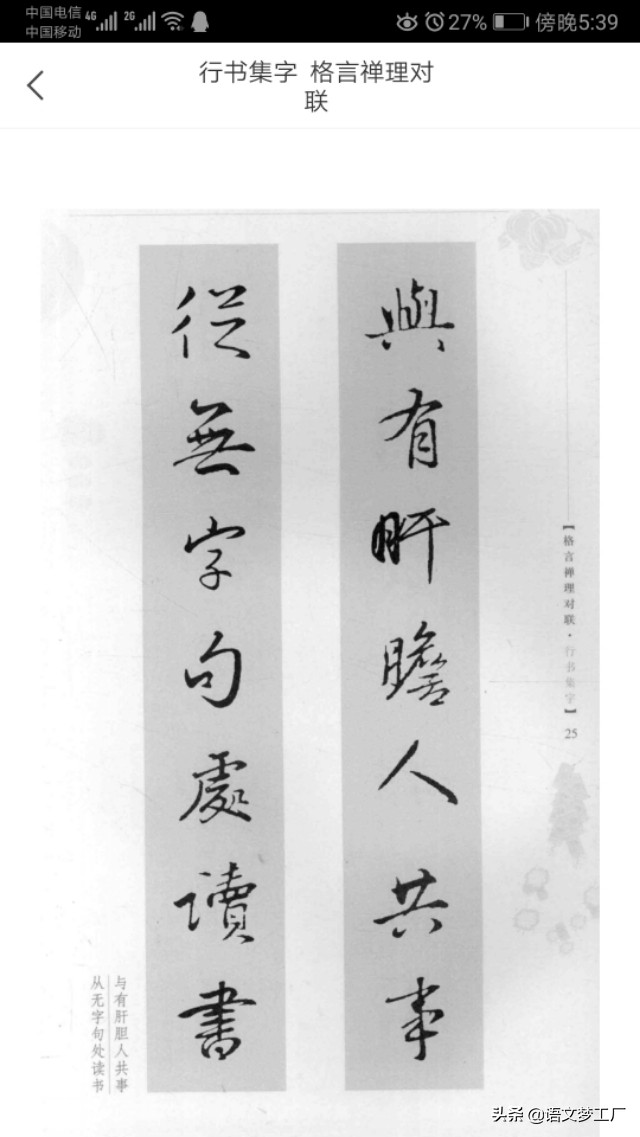 中国电信 4G 2G 27% 傍晚5:39
中国移动
行书集字 格言禅理对
联
與有肝膽人共事
從無字句處讀書
【格言禅理对联·行书集字】 25
与有肝胆人共事
从无字句处读书
头条 @语文梦工厂